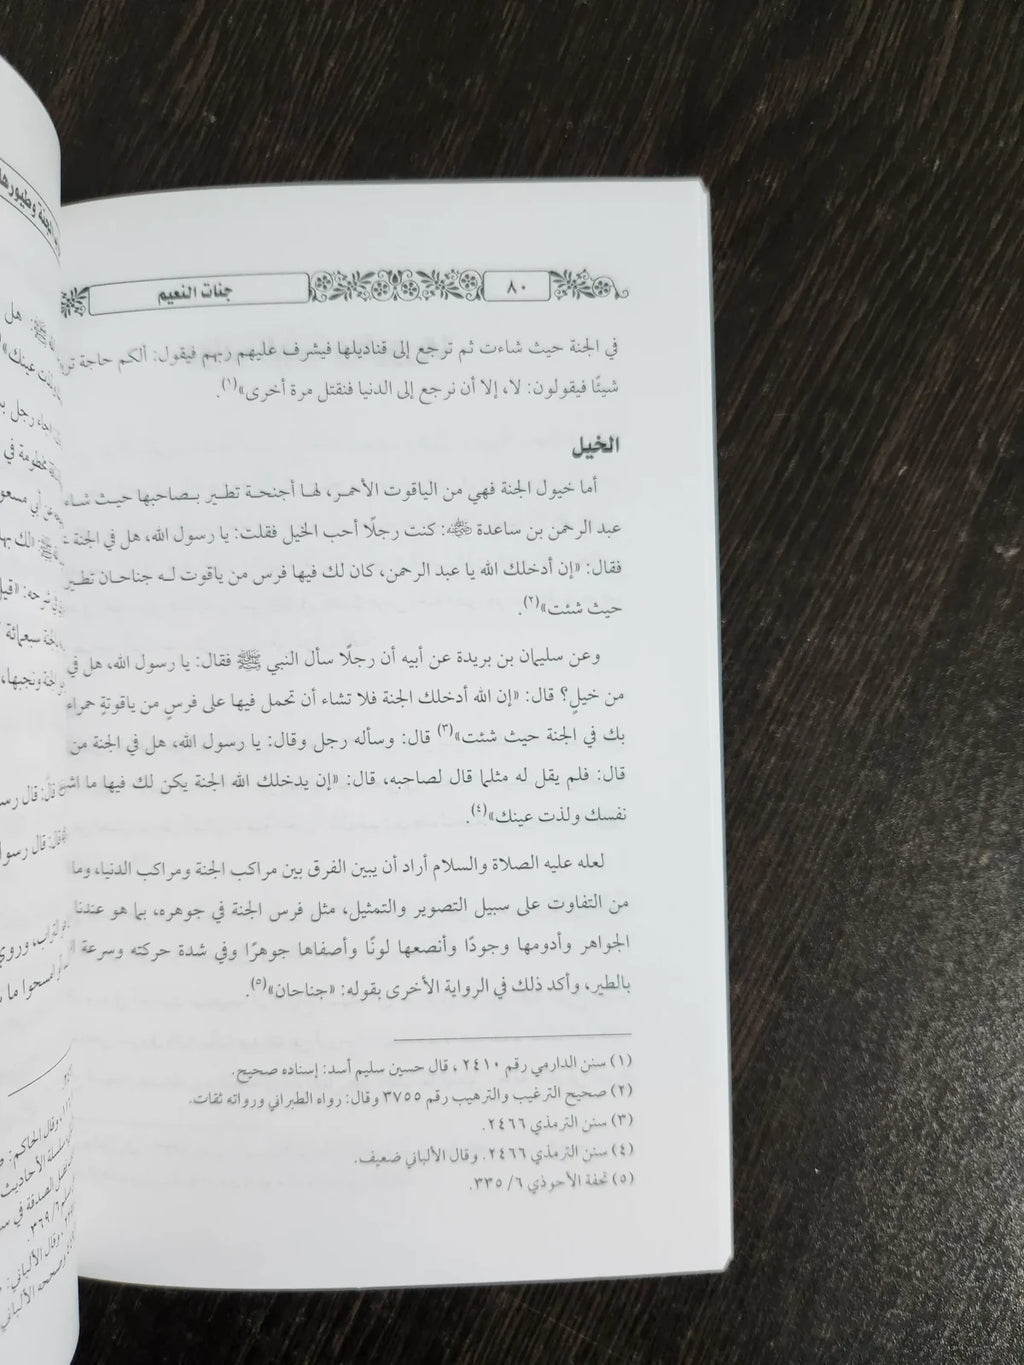 ٨٠
جنات النعيم
في الجنة حيث شاءت ثم ترجع إلى قناديلها فيشرف عليهم ربهم فيقول: ألكم حاجة
شيئًا فيقولون: لا، إلا أن نرجع إلى الدنيا فنقتل مرة أخرى»(١).
الخيل
أما خيول الجنة فهي من الياقوت الأحمر، لها أجنحة تطير بصاحبها حيث شاء
عبد الرحمن بن ساعدة ﷺ: كنت رجلًا أحب الخيل فقلت: يا رسول الله، هل في الجنة
فقال: «إن أدخلك الله يا عبد الرحمن، كان لك فيها فرس من ياقوت له جناحان تطير
حيث شئت»(٢).
وعن سليمان بن بريدة عن أبيه أن رجلًا سأل النبي ﷺ فقال: يا رسول الله، هل في
من خيلٍ؟ قال: «إن الله أدخلك الجنة فلا تشاء أن تحمل فيها على فرسٍ من ياقوتةٍ حمراء
بك في الجنة حيث شئت»(٣) قال: وسأله رجل وقال: يا رسول الله، هل في الجنة من
قال: فلم يقل له مثلما قال لصاحبه، قال: «إن يدخلك الله الجنة يكن لك فيها ما
نفسك ولذت عينك»(٤).
لعله عليه الصلاة والسلام أراد أن يبين الفرق بين مراكب الجنة ومراكب الدنيا، وما
من التفاوت على سبيل التصوير والتمثيل، مثل فرس الجنة في جوهره، بما هو عندنا
الجواهر وأدومها وجودًا وأنصعها لونًا وأصفاها جوهرًا وفي شدة حركته وسرعة
بالطير، وأكد ذلك في الرواية الأخرى بقوله: «جناحان»(٥).
(١) سنن الدارمي رقم ٢٤١٠، قال حسين سليم أسد: إسناده صحيح.
(٢) صحيح الترغيب والترهيب رقم ٣٧٥٥ وقال: رواه الطبراني ورواته ثقات.
(٣) سنن الترمذي ٢٤٦٦.
(٤) سنن الترمذي ٢٤٦٦. وقال الألباني ضعيف.
(٥) تحفة الأحوذي ٦/ ٣٣٥.